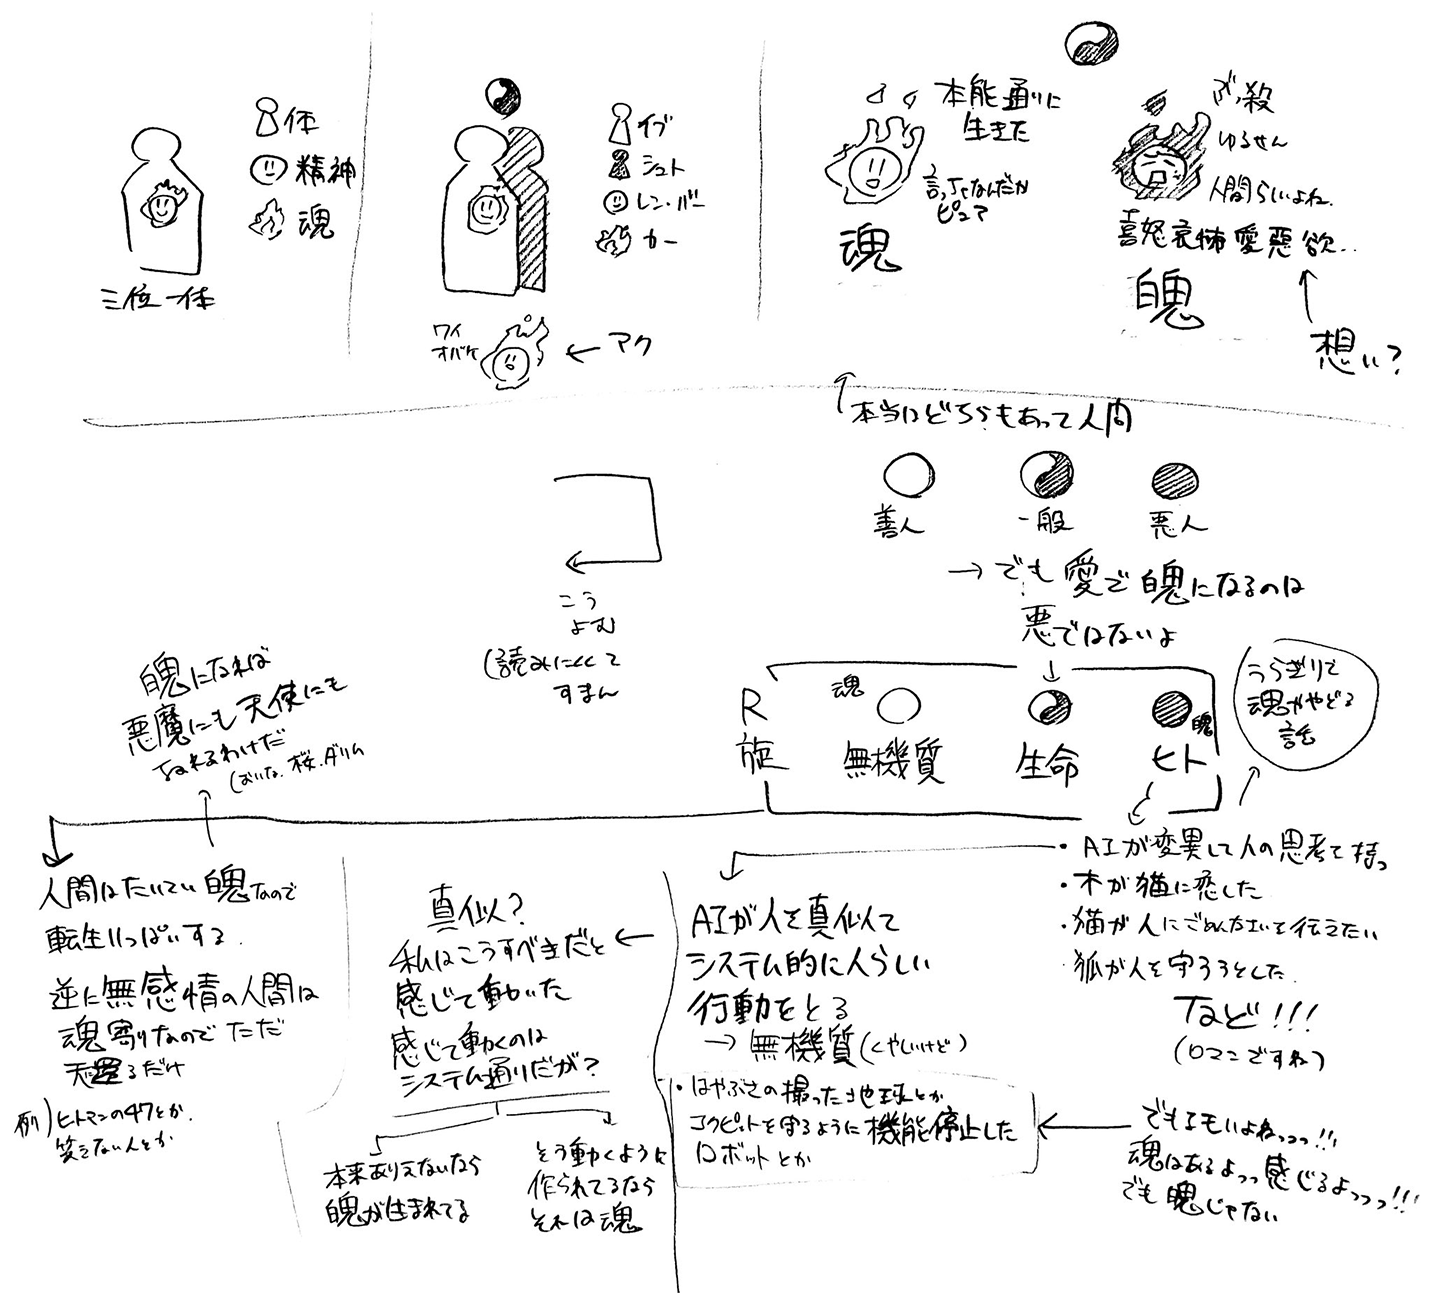 体
精神
魂
三位一体
イブ
シュト
レン・バー
カー
ワイ
オバケ
アク
本能通りに
生きた
言っちゃなんだが
ピュア
魂
ゆるせん
人間らしいよね
喜怒哀怖愛悪欲…
魄
想い?
本当はどちらもあって人間
善人
一般
悪人
→でも愛で魄になるのは
悪ではないよ
こう
よむ
(読みにくくて
すまん
R
旋
魂
無機質
生命
ヒト
魄
うらぎりで
魂がやどる
話
・AIが変異して人の思考て持つ
・木が猫に恋した
・猫が人にごめんなさいを伝えたい
・狐が人を守ろうとした
など!!!
(ロマンですね)
AIが人を真似て
システム的に人らしい
行動をとる
→無機質(くやしいけど)
・はやぶさの撮った地球とか
コクピットを守るように機能停止した
ロボットとか
でもエモいよねっっっ!!!
魂はあるよっっ感じるよっっっ!!!
でも魄じゃない
真似?
私はこうすべきだと
感じて動いた
感じて動くのは
システム通りだが?
本来ありえないなら
魄が生まれてる
そう動くように
作られてるなら
それは魂
魄になれば
悪魔にも天使にも
なれるわけだ
桜、ダリム
人間はたいてい魄なので
転生いっぱいする
逆に無感情の人間は
魂寄りなのでただ
るだけ
例)ヒトマンの47とか
笑えない人とか